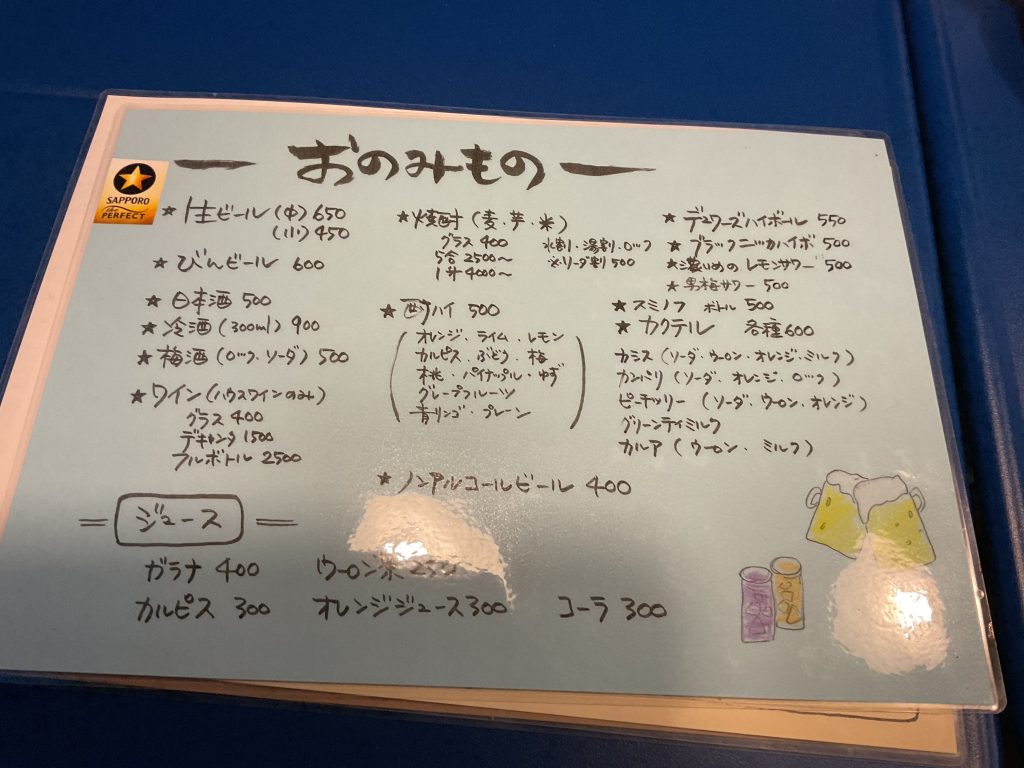 — おのみもの —
SAPPORO
the PERFECT
★ 生ビール (中) 650
(小) 450
★ びんビール 600
★ 日本酒 500
★ 冷酒 (300ml) 900
★ 梅酒 (ロック・ソーダ) 500
★ ワイン (ハウスワインのみ)
グラス 400
デキャンタ 1500
フルボトル 2500
★ 焼酎 (麦・芋・米)
グラス 400 水割・湯割・ロック
5合 2500〜 ※ソーダ割 500
1升 4000〜
★ 酎ハイ 500
(オレンジ、ライム、レモン
カルピス、ぶどう、梅
桃・パイナップル・ゆず
グレープフルーツ
青リンゴ・プレーン)
★ ノンアルコールビール 400
★ デュワーズハイボール 550
★ ブラックニッカハイボ 500
★ 濃いめのレモンサワー 500
★ 男梅サワー 500
★ スミノフ ボトル 500
★ カクテル 各種600
カシス (ソーダ・ウーロン・オレンジ・ミルク)
カンパリ (ソーダ、オレンジ、ロック)
ピーチツリー (ソーダ、ウーロン・オレンジ)
グリーンティミルク
カルア (ウーロン、ミルク)
= ジュース =
ガラナ 400 ウーロン茶 250
カルピス 300 オレンジジュース 300 コーラ 300